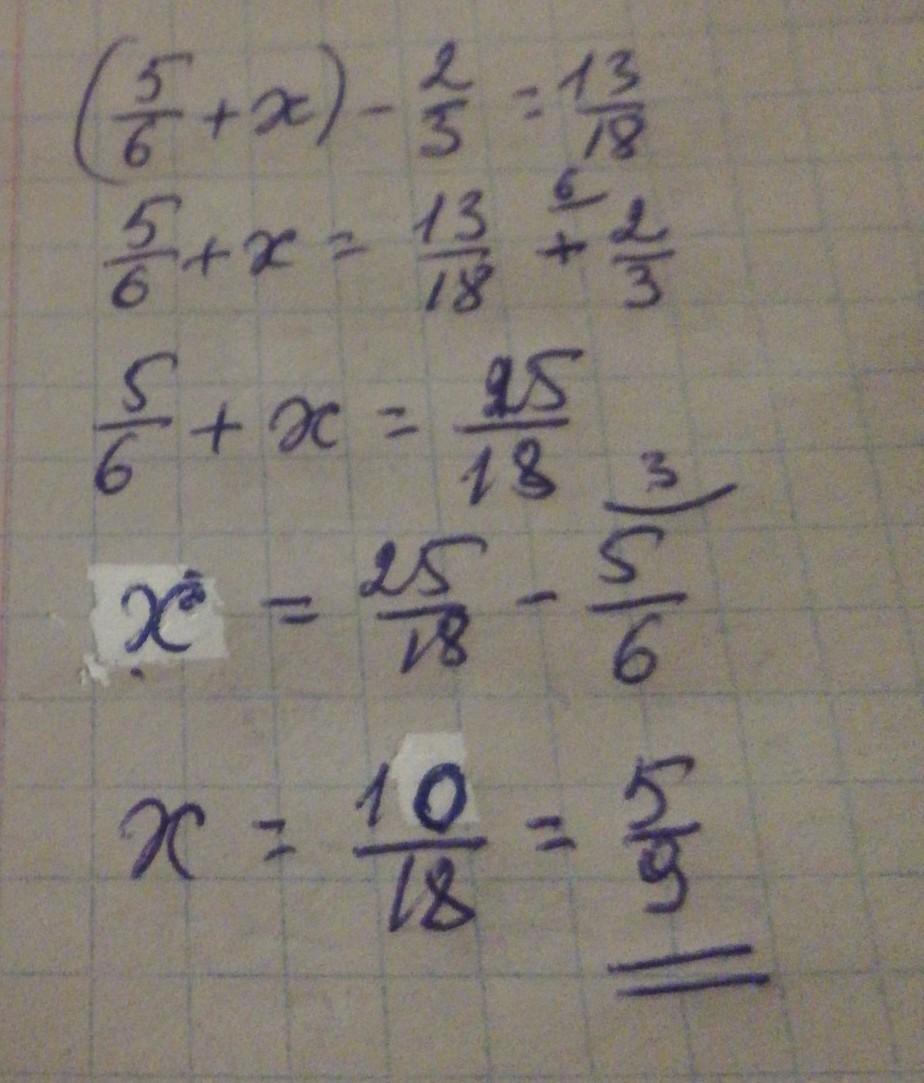 (5/6 + x) - 2/3 = 13/18
5/6 + x = 13/18 + 6/ 2/3
5/6 + x = 25/18
x = 25/18 - 3/ 5/6
x = 10/18 = 5/9